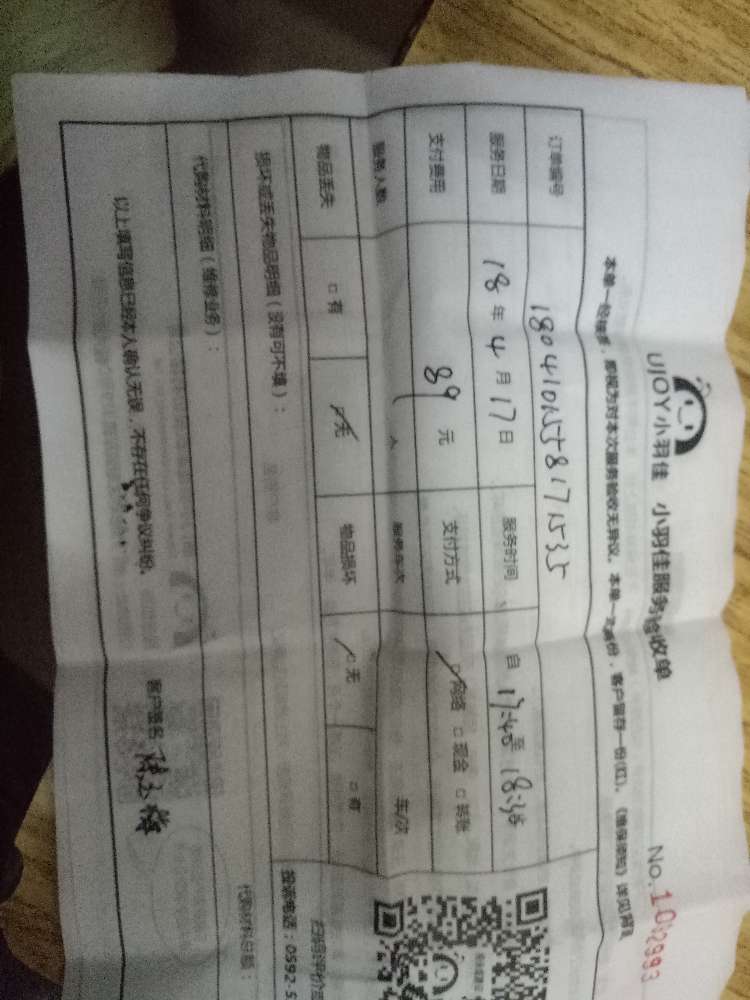 UJOY小羽佳 小羽佳服务验收单 No.1012993
本单一经签署，即视为对本次服务验收无异议。本单一式两份，客户留存一份(红)。
订单编号 1804101558171535
服务日期 18年4月17日 服务时间 自17:40至18:30
支付费用 89元 支付方式 □网络 □现金 □转账
服务人数 人 服务车次 车/次
物品丢失 □有 □无 物品损坏 □无 □有
损坏或丢失物品明细（没有可不填）：
代购材料明细（维修业务）： 代购材料总额：
以上填写信息已经本人确认无误，不存在任何争议纠纷。 客户签名
投诉电话：0592-5